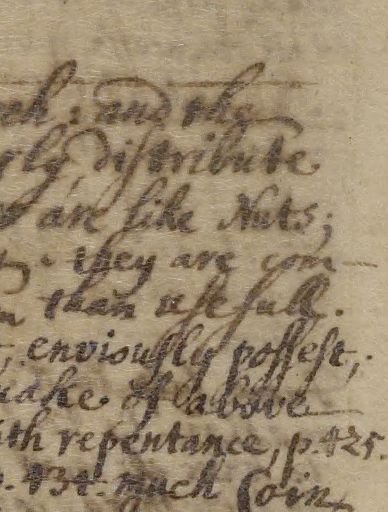 and the
distribute
are like Nuts;
they are com
than usefull.
enviously possest,
of above
repentance, p. 425.
434. much Coin